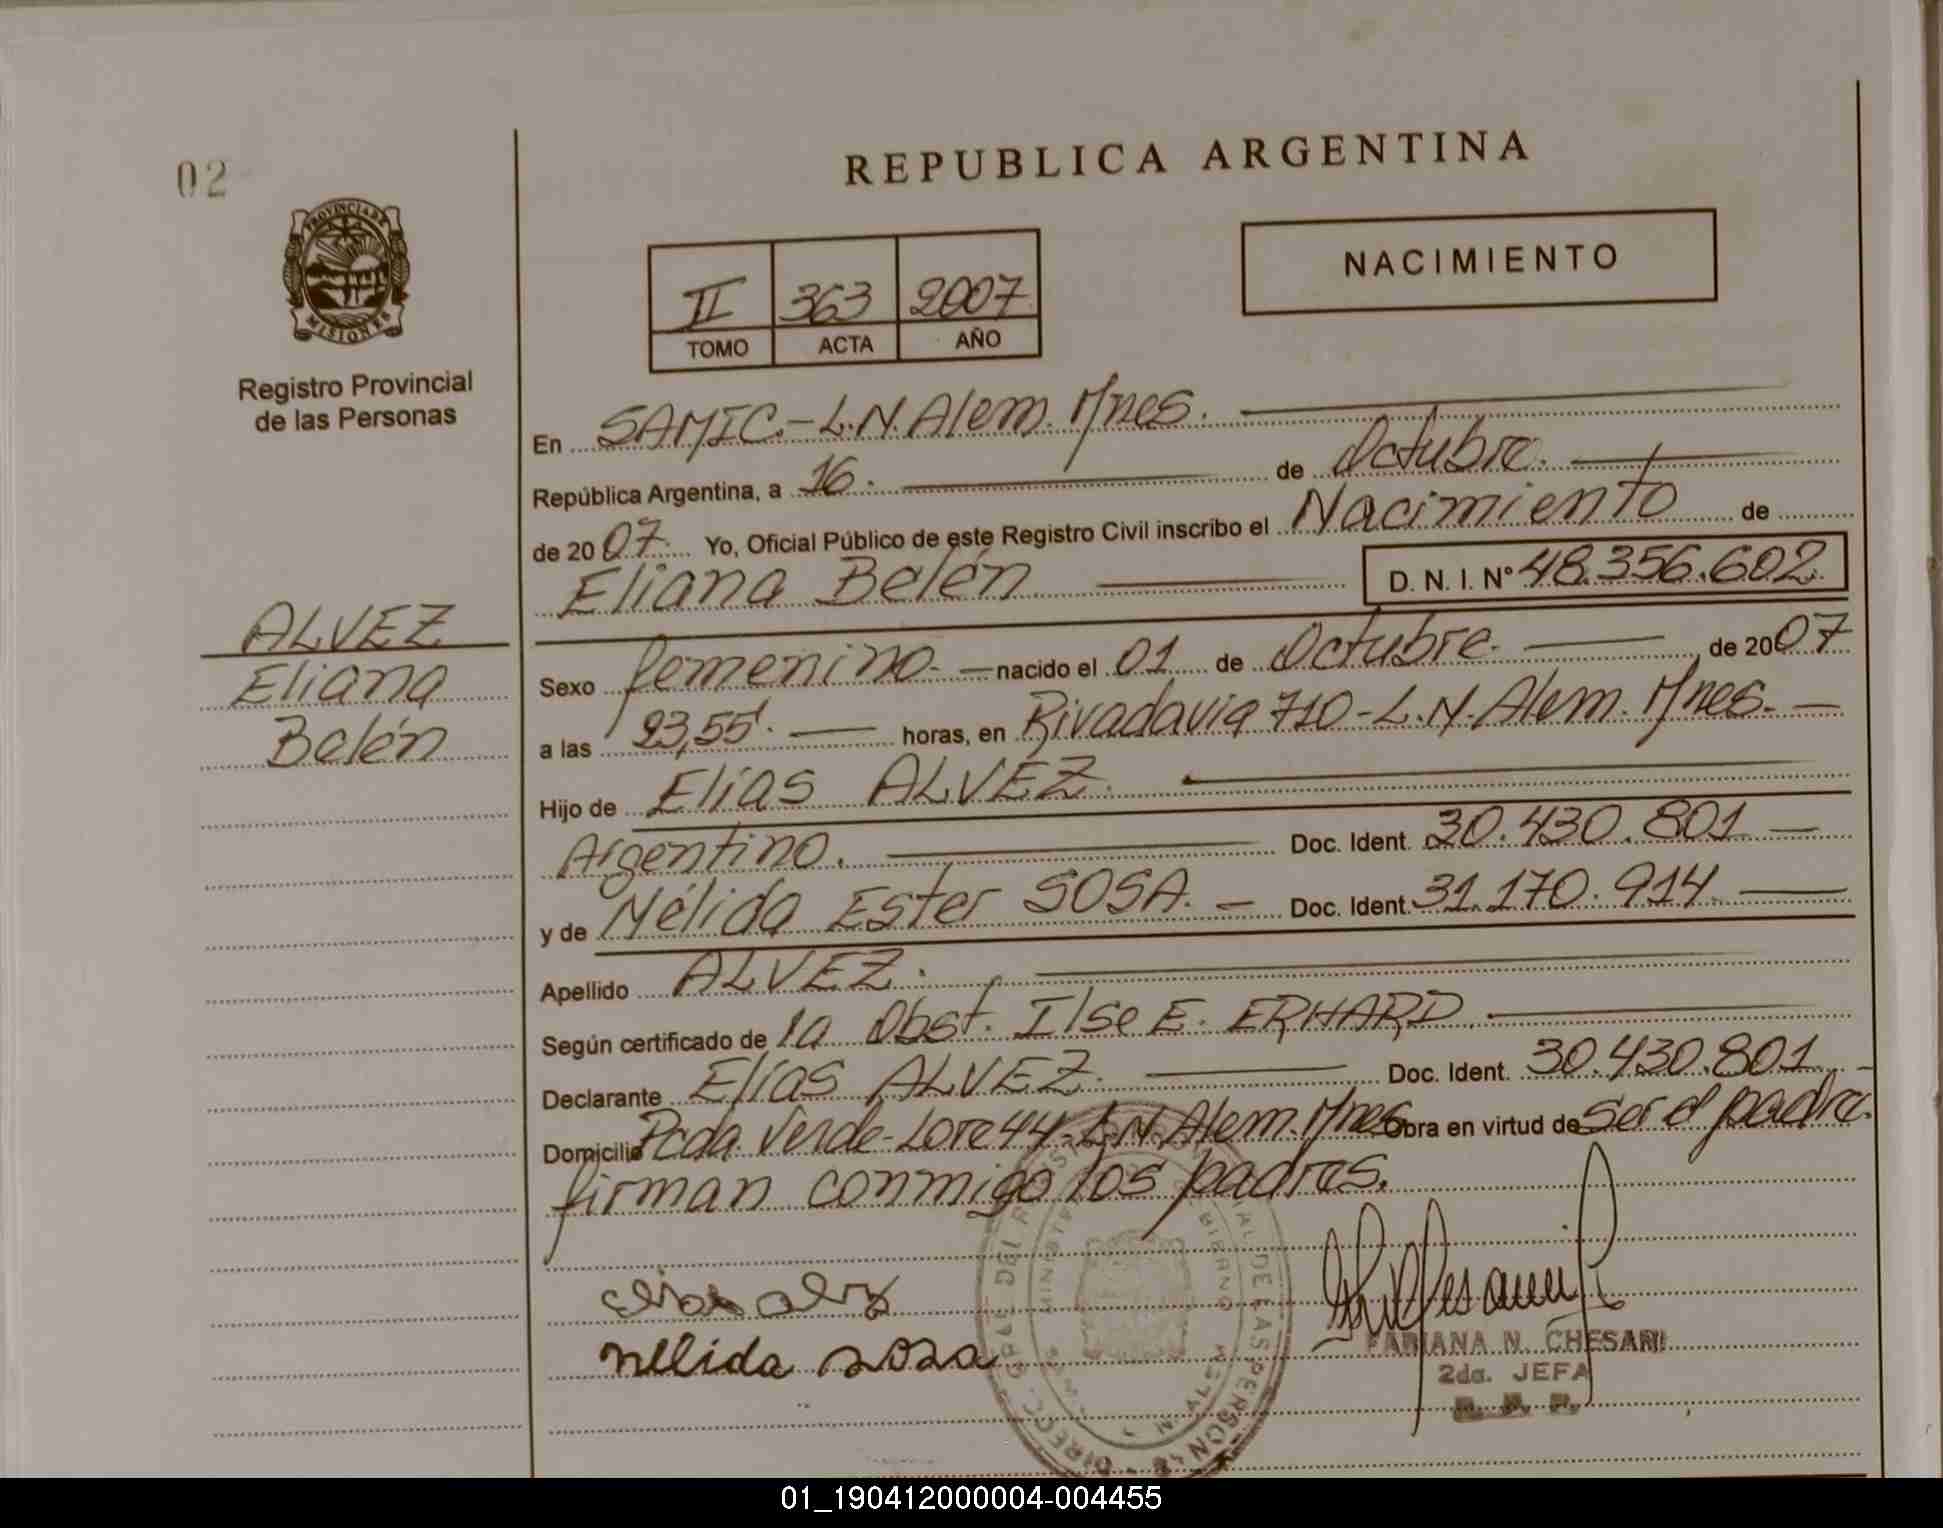 02
REPUBLICA ARGENTINA
PROVINCIA DE
MISIONES
Registro Provincial
de las Personas
II 363 2007
TOMO ACTA AÑO
NACIMIENTO
En SAMIC.-L.N.Alem.Mnes.
República Argentina, a 16. de Octubre.
de 2007. Yo, Oficial Público de este Registro Civil inscribo el Nacimiento de
Eliana Belén D. N. I. Nº 48.356.602.
ALVEZ
Eliana
Belén
Sexo femenino. nacido el 01 de Octubre. de 2007
a las 23,55'. horas, en Rivadavia 710-L.N.Alem.Mnes.
Hijo de Elías ALVEZ.
Argentino. Doc. Ident. 30.430.801
y de Nélida Ester SOSA. Doc. Ident. 31.170.914.
Apellido ALVEZ.
Según certificado de la Obst. Ilse E. ERHARD.
Declarante Elías ALVEZ. Doc. Ident. 30.430.801
Domicilio Pcda. Verde-Lote 44-L.N.Alem.Mnes. Obra en virtud de ser el padre.
firman conmigo los padres.
nelida sosa
FABIANA N. CHESANI
2da. JEFA
01_190412000004-004455